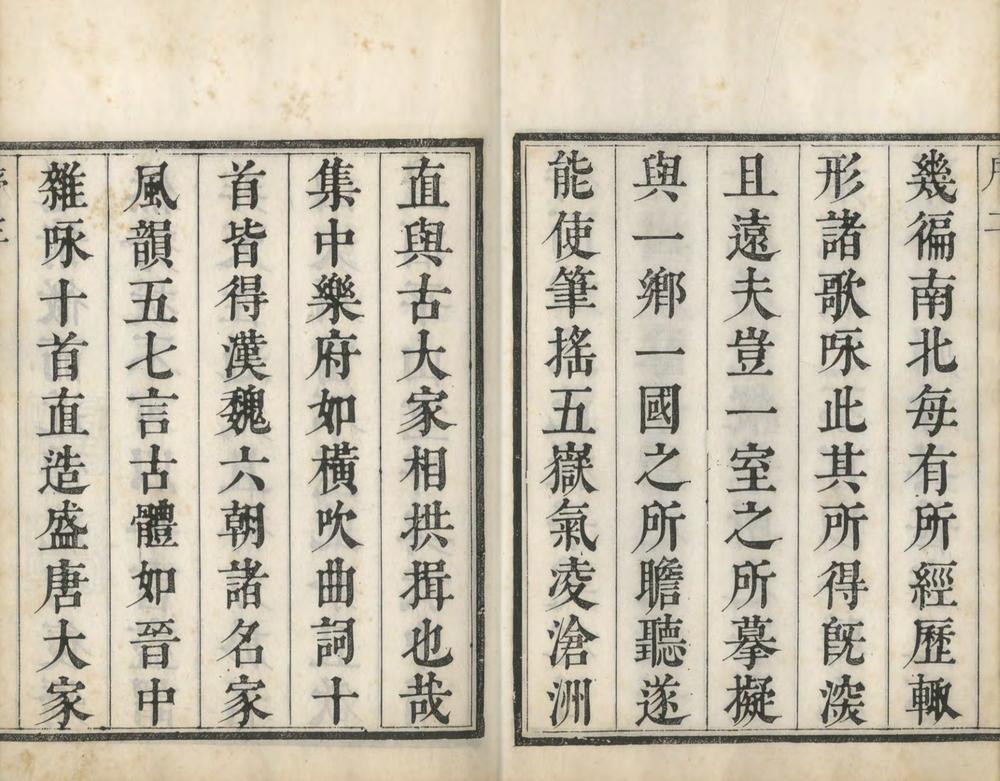 幾徧南北每有所經歷輙
形諸歌咏此其所得旣深
且遠夫豈一室之所摹擬
與一鄉一國之所瞻聽遂
能使筆搖五嶽氣凌滄洲
直與古大家相拱揖也哉
集中樂府如橫吹曲詞十
首皆得漢魏六朝諸名家
風韻五七言古體如晉中
雜咏十首直造盛唐大家